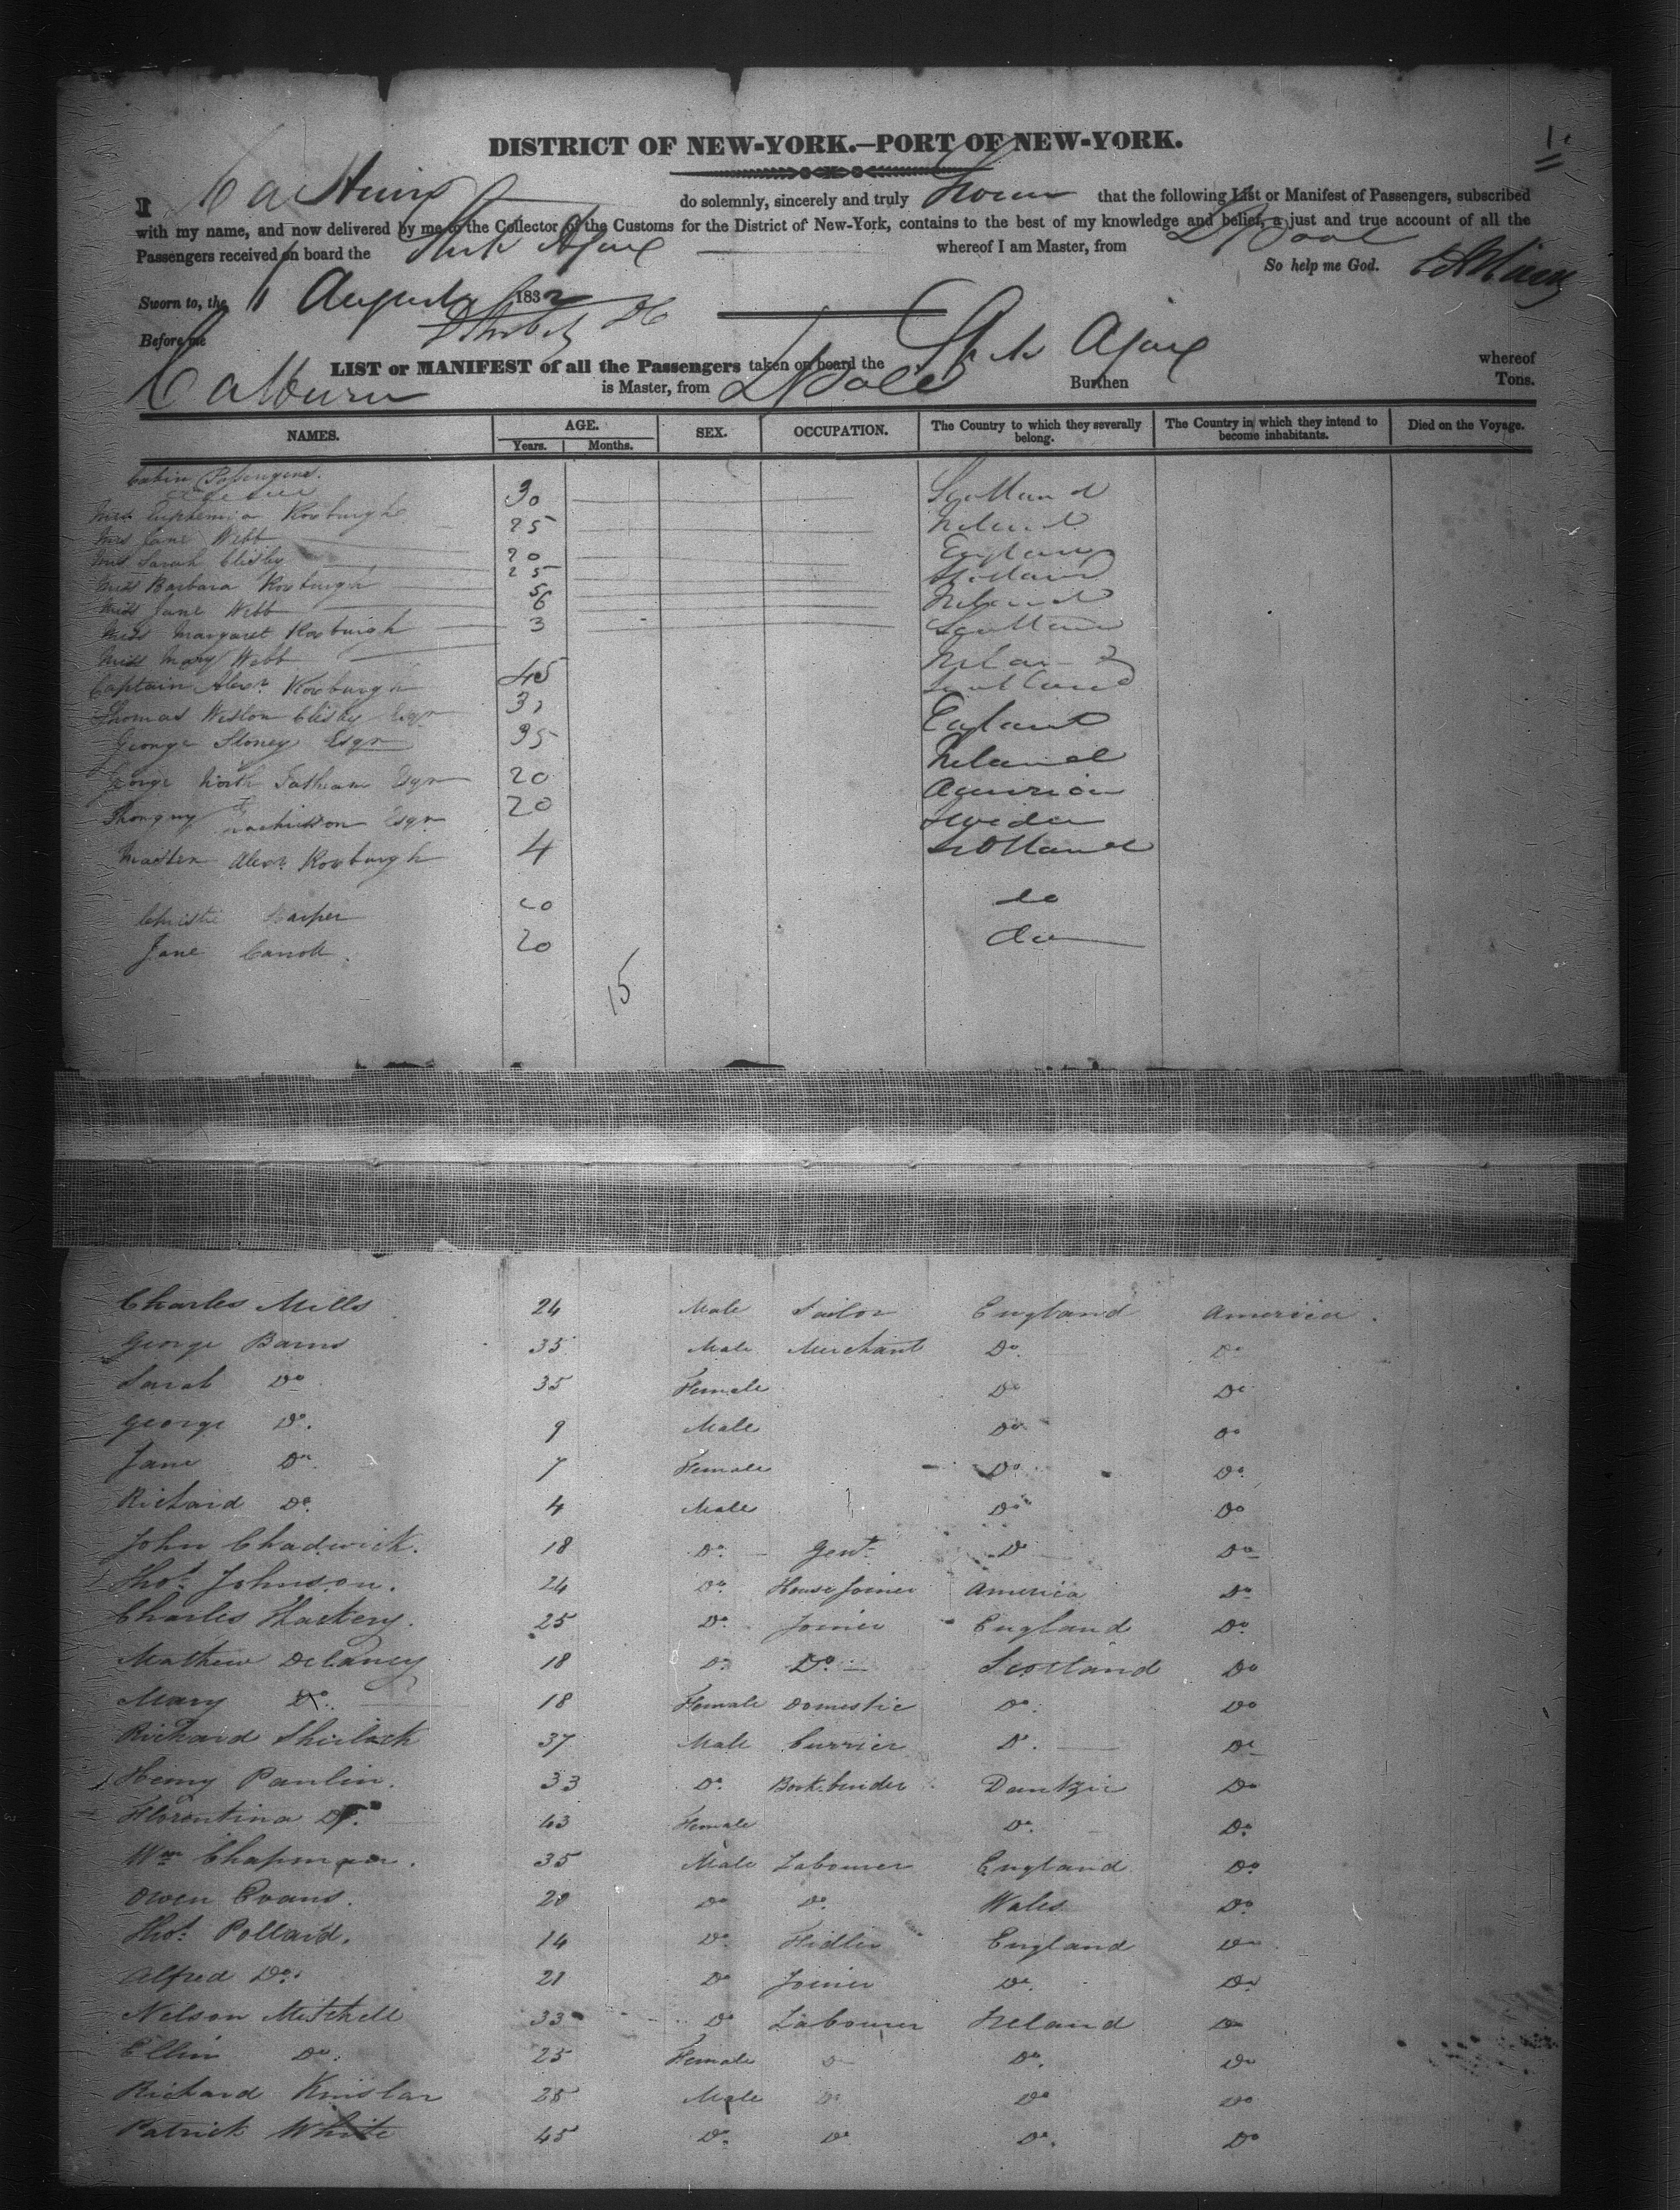 1.
DISTRICT OF NEW-YORK.—PORT OF NEW-YORK.
I do solemnly, sincerely and truly that the following List or Manifest of Passengers, subscribed
with my name, and now delivered by me to the Collector of the Customs for the District of New-York, contains to the best of my knowledge and belief, a just and true account of all the
Passengers received on board the Ship Ajax whereof I am Master, from LPool
So help me God.
Sworn to, the 1 August 1832
Before me
LIST or MANIFEST of all the Passengers taken on board the Ship Ajax whereof
is Master, from LPool Burthen Tons.
NAMES. AGE. Years. Months. SEX. OCCUPATION. The Country to which they severally belong. The Country in which they intend to become inhabitants. Died on the Voyage.
Cabin Passengers.
Mrs Euphemia Roxburgh 30 Scotland
Mrs Jane Webb 25 Ireland
Mrs Sarah Clisby 20 England
Miss Barbara Roxburgh 25 Scotland
Miss Jane Webb 5 Ireland
Miss Margaret Roxburgh 6 Scotland
Miss Mary Webb 3 Ireland
Captain Alexr. Roxburgh 45 Scotland
Thomas Weston Clisby Esqr England
George Stoney Esqr 35 Ireland
George North Tatham Esqr 20 America
Esqr 20 Sweden
Master Alexr Roxburgh 4 Scotland
Christie Harper 20 do
Jane 20 do
15
Charles Mills 24 Male Sailor England America.
George Barns 35 Male Merchant Do. Do
Sarah Do 35 Female Do Do
George Do. 9 Male Do Do
Jane Do 7 Female Do. Do.
Richard Do. 4 Male Do Do
John Chadwick. 18 Do. Gent. Do Do
Thos. Johnson. 24 Do. House Joiner America Do
Charles Hartery. 25 Do. Joiner England Do.
Mathew Delaney 18 Do Do. Scotland Do
Mary Do. 18 Female Domestic Do. Do
Richard Shirlock 37 Male Currier Do. Do
Henry Paulin. 33 Do. Book binder Dantzic Do
Florentina Do. 43 Female Do. Do.
Wm Chapman. 35 Male Labourer England Do.
Owen Evans. 20 Do Do. Wales Do.
Thos. Pollard. 14 Do. Fidler England Do
Alfred Do. 21 Do Joiner Do. Do
Nelson Mitchell 33 Do Labourer Ireland Do
Ellin Do. 25 Female Do. Do
Richard Kinslar 25 Male Do. Do Do
Patrick White 45 Do. Do. Do. Do